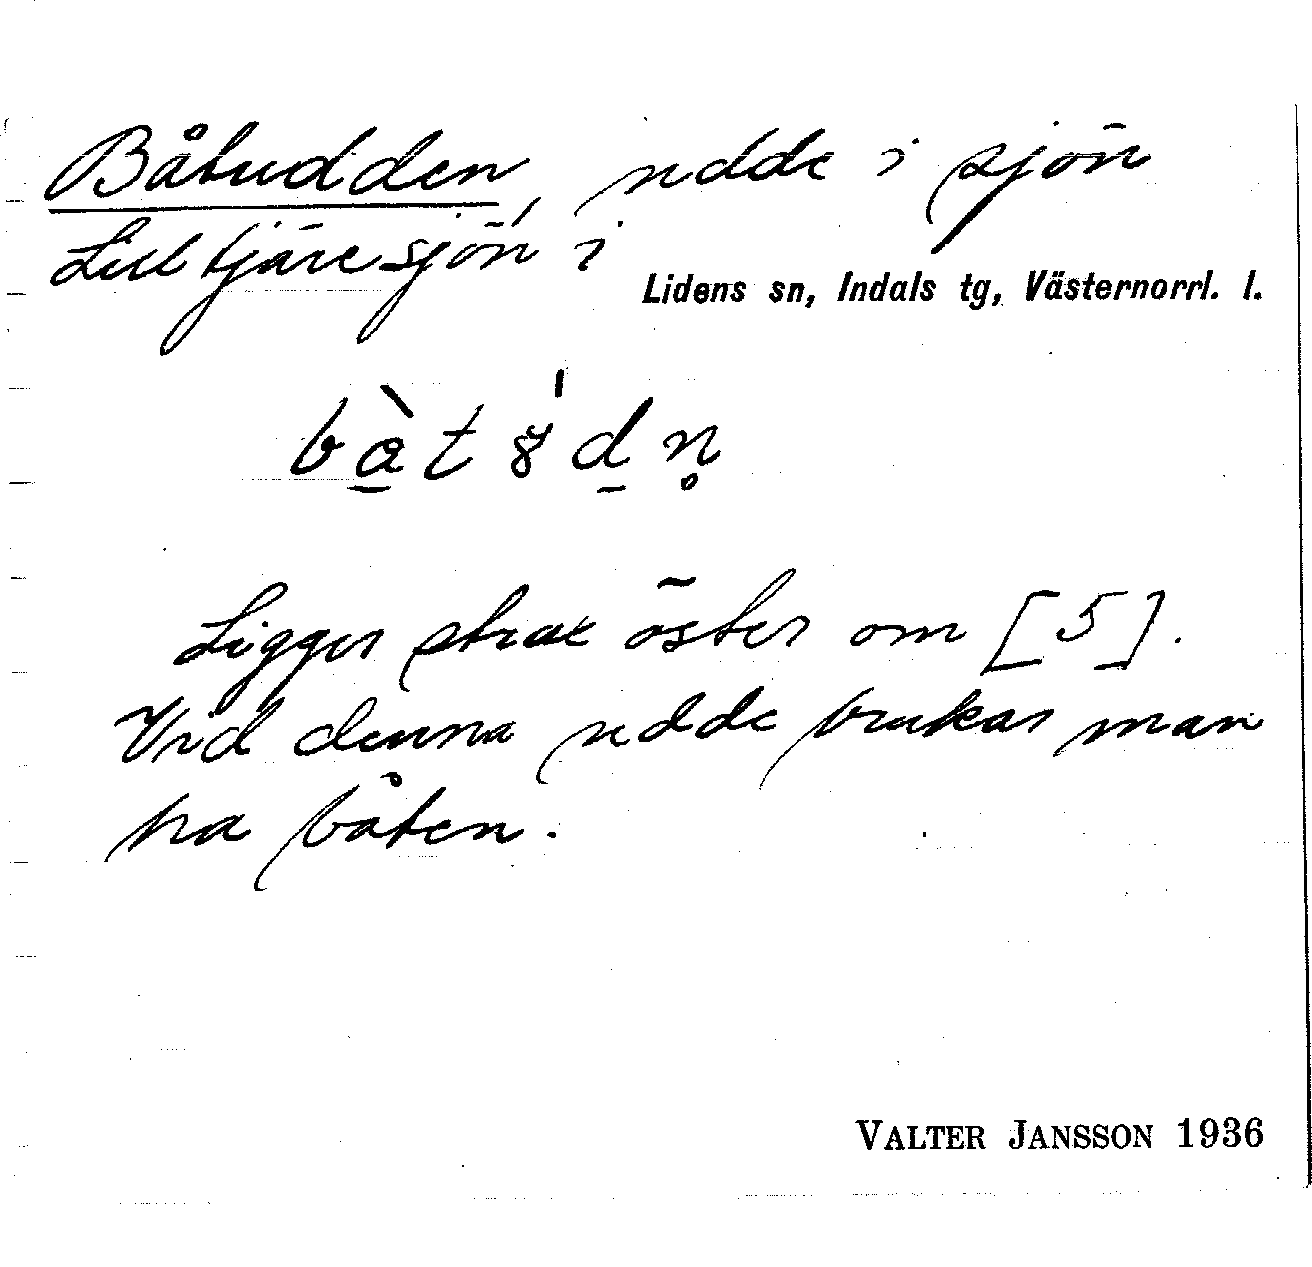 Båtudden, udde i sjön
Lilltjäresjön i
Lidens sn, Indals tg, Västernorrl. l.
Ligger strax öster om [5].
Vid denna udde brukar man
ha båten.
VALTER JANSSON 1936